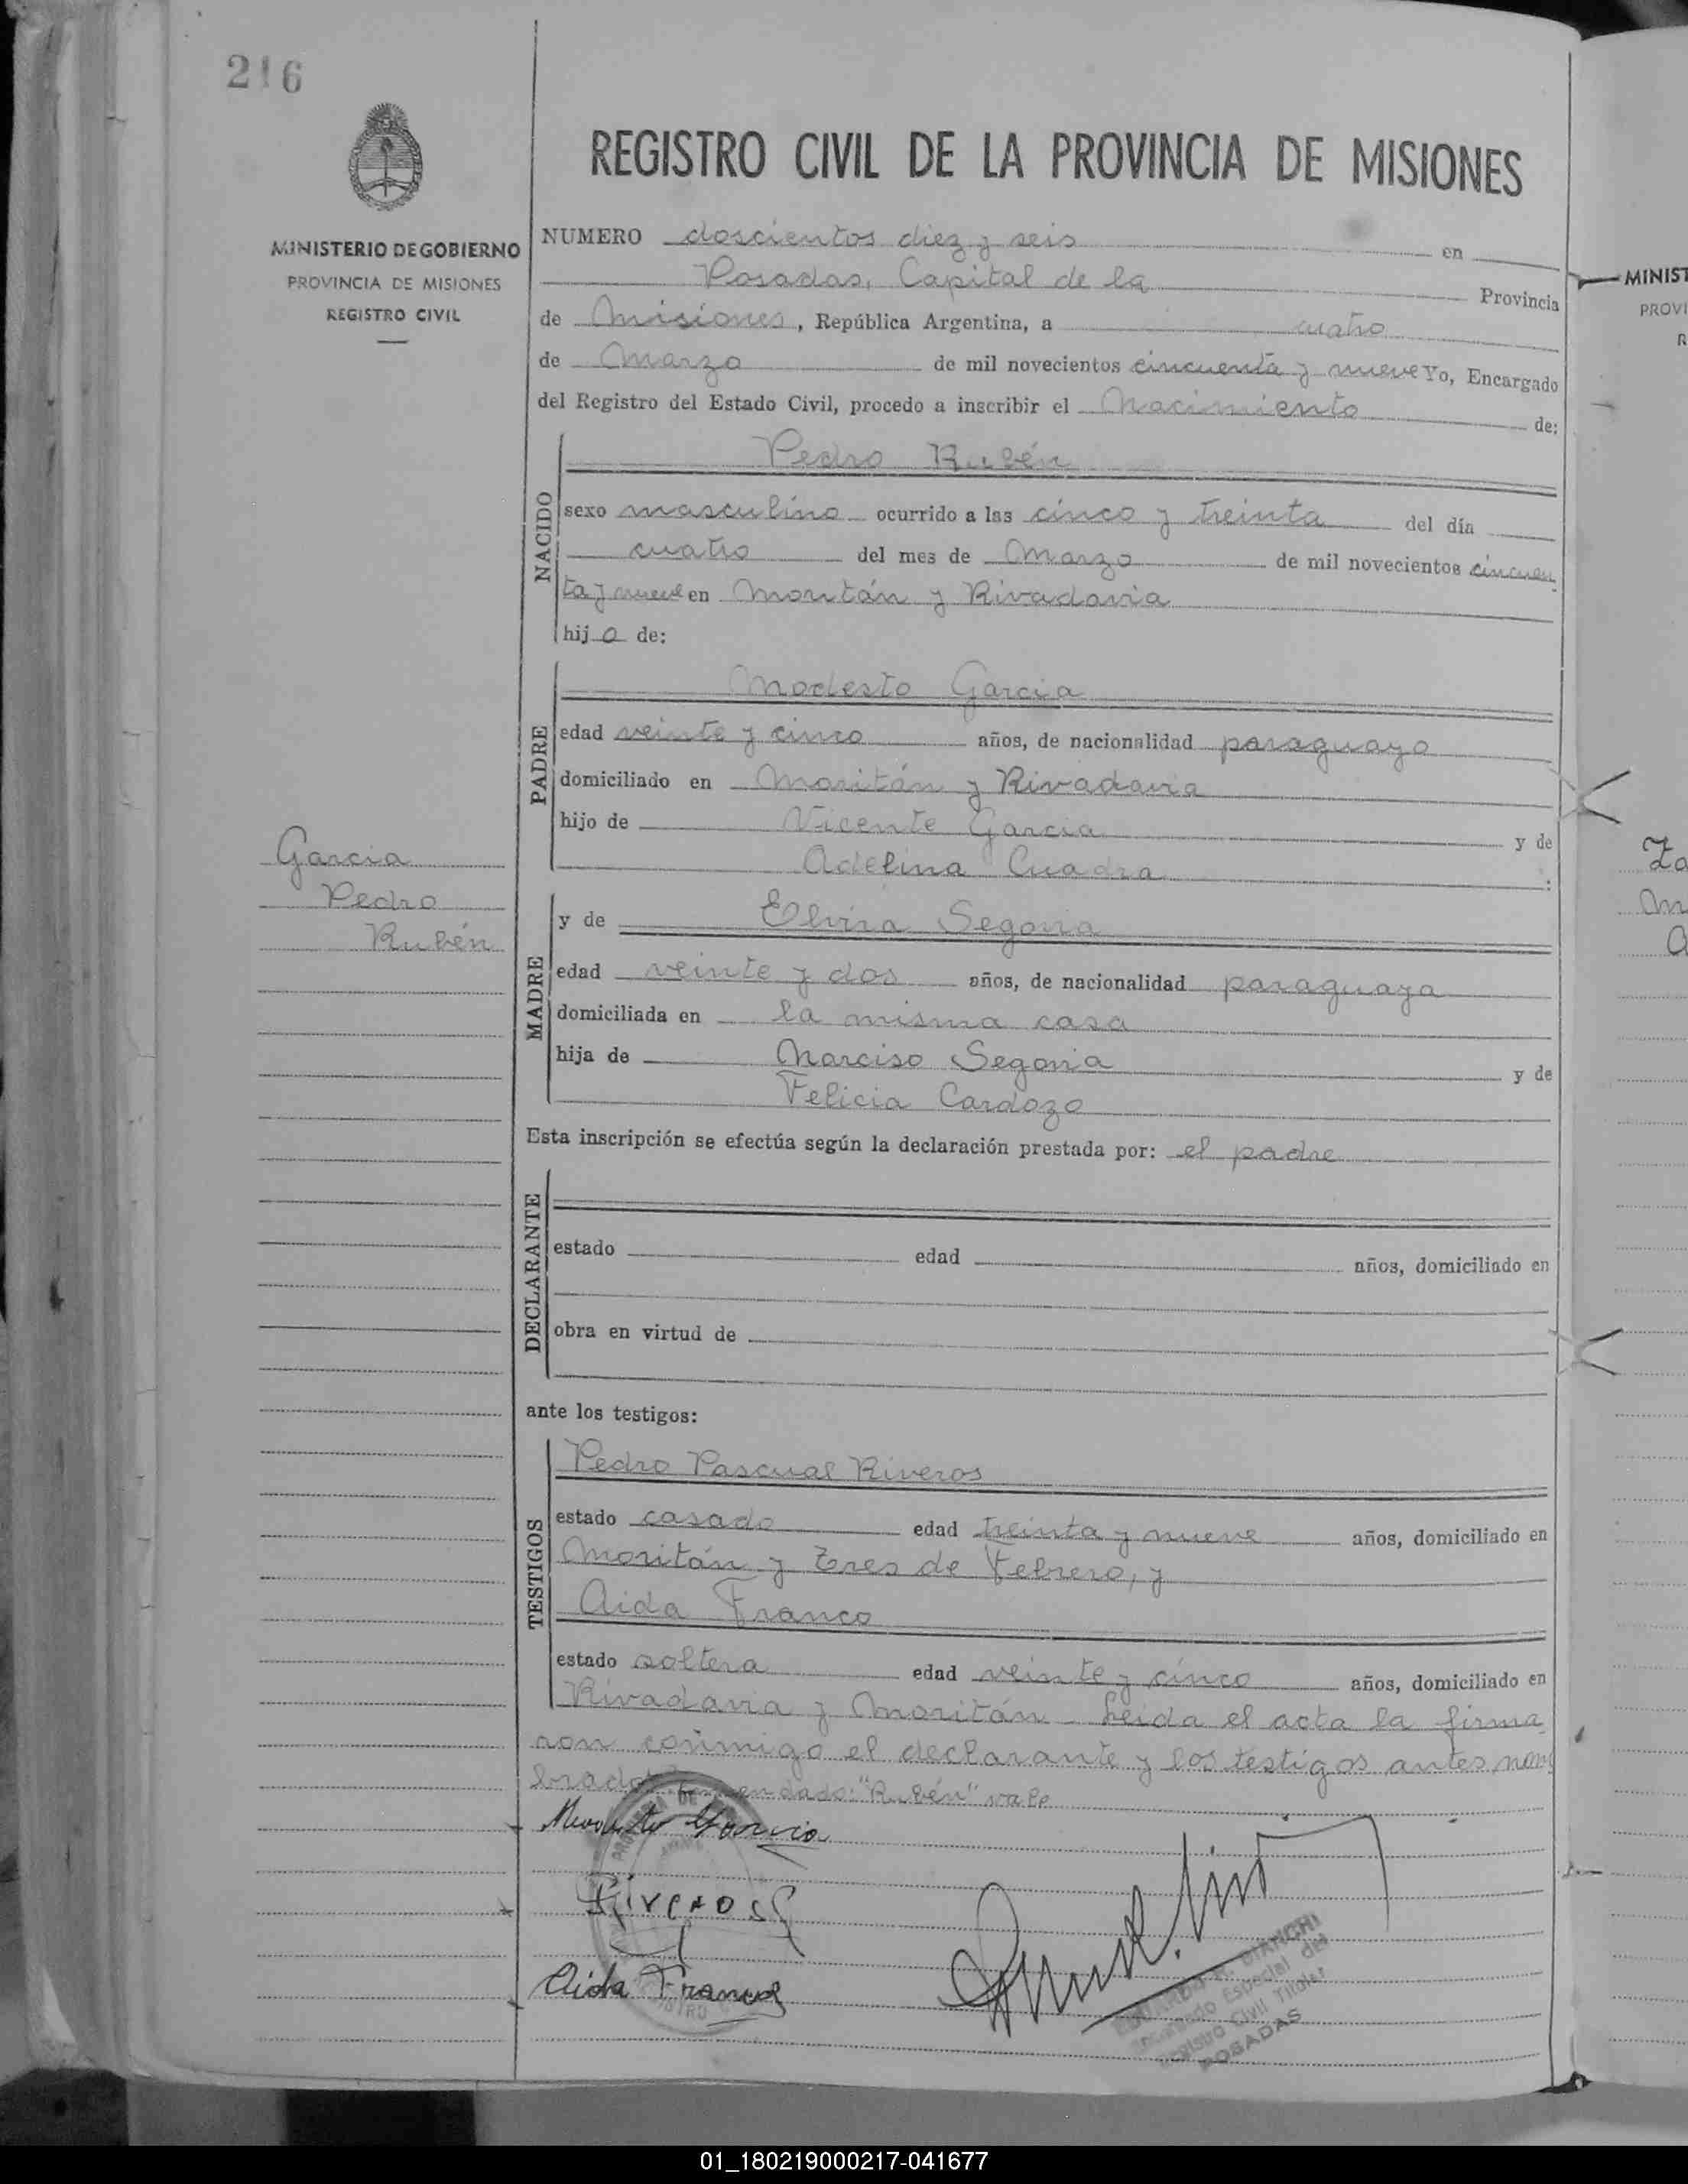 216
MINISTERIO DE GOBIERNO
PROVINCIA DE MISIONES
REGISTRO CIVIL
REGISTRO CIVIL DE LA PROVINCIA DE MISIONES
NUMERO doscientos diez y seis en
Posadas, Capital de la Provincia
de Misiones, República Argentina, a cuatro
de Marzo de mil novecientos cincuenta y nueve Yo, Encargado
del Registro del Estado Civil, procedo a inscribir el Nacimiento de:
NACIDO
Pedro Rubén
sexo masculino ocurrido a las cinco y treinta del día
cuatro del mes de Marzo de mil novecientos cincuen
ta y nueve en Moritán y Rivadavia
hijo de:
PADRE
Modesto Garcia
edad veinte y cinco años, de nacionalidad paraguayo
domiciliado en Moritán y Rivadavia
hijo de Vicente Garcia y de
Adelina Cuadra :
Garcia
Pedro
Rubén
MADRE
y de Elvira Segovia
edad veinte y dos años, de nacionalidad paraguaya
domiciliada en la misma casa
hija de Narciso Segovia y de
Felicia Cardozo
Esta inscripción se efectúa según la declaración prestada por: el padre
DECLARANTE
estado edad años, domiciliado en
obra en virtud de
ante los testigos:
TESTIGOS
Pedro Pascual Riveros
estado casado edad treinta y nueve años, domiciliado en
Moritán y Tres de Febrero, y
Aida Franco
estado soltera edad veinte y cinco años, domiciliado en
Rivadavia y Moritán - Leida el acta la firma
ron conmigo el declarante y los testigos antes nom
brados. Enmendado: "Rubén" vale
Modesto Garcia
Riveros
Aida Franco
BIANCHI
Especial del
Registro Civil Titular
POSADAS
MINIST
PROVI
R
01_180219000217-041677